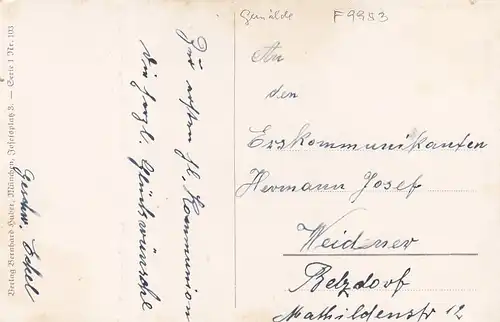 Gemälde F9983
Zur ersten hl. Kommunion
die herzl. Glückwünsche
Geschw. Eckel
An
den
Erskommunikanten
Hermann Josef
Weidener
Belzdorf
Mathildenstr 12
Verlag Bernhard Huber, München, Josefsplatz 3. — Serie 1 Nr. 103